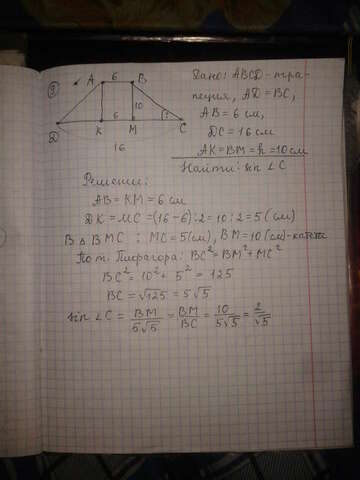 9)
A 6 B
10
6
D K M C
?
16
Дано: ABCD - тра-
пеция, AD = BC,
AB = 6 см,
DC = 16 см
AK = BM = h = 10 см
Найти: sin ∠C
Решение:
AB = KM = 6 см
DK = MC = (16 - 6) : 2 = 10 : 2 = 5 (см)
В △ BMC : MC = 5(см), BM = 10 (см) - катеты
По т. Пифагора: BC² = BM² + MC²
BC² = 10² + 5² = 125
BC = √125 = 5√5
sin ∠C = BM/5√5 = BM/BC = 10/5√5 = 2/√5